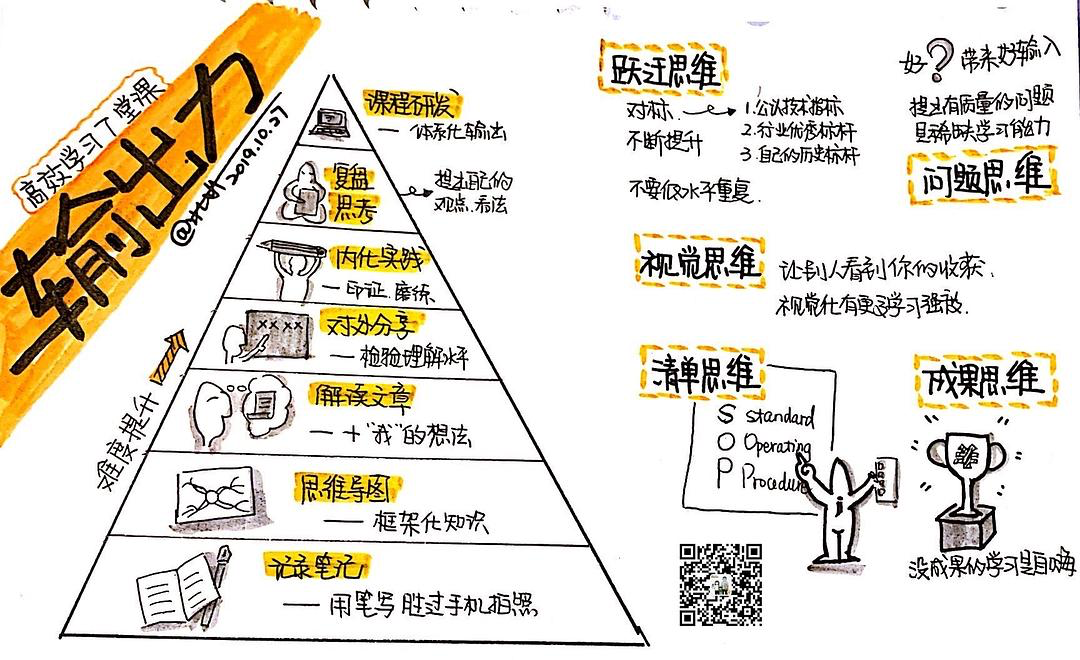 高效学习7堂课
输出力
2019.10.27
难度提升
课程研发
— 体系化输出
复盘
思考
提出自己的
观点.看法
内化实践
— 印证.磨练
对外分享
— 检验理解水平
解读文章
— + "我"的想法
思维导图
— 框架化知识
记录笔记
— 用笔写 胜过手机拍照
跃迁思维
对标
不断提升
1.公认技术指标
2.行业优秀标杆
3.自己的历史标杆
不要低水平重复.
好?带来好输入
提出有质量的问题
是稀缺大学习能力
问题思维
视觉思维
让别人看到你的收获.
视觉化有更多学习强放.
清单思维
S Standard
O Operating
P Procedure
成果思维
没成果的学习是自嗨